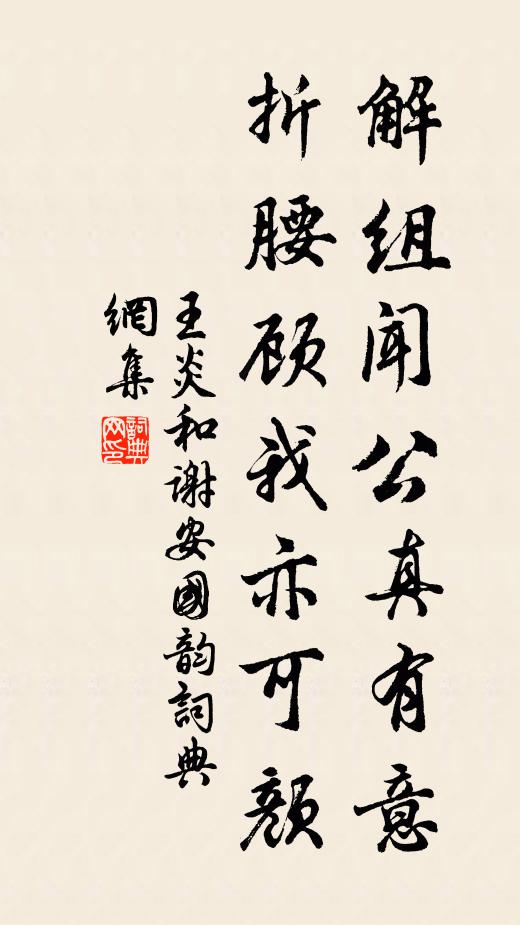 解组闻公真有意
折腰顾我亦可颜
王炎和谢安國韵詞典
網集
詞典網印